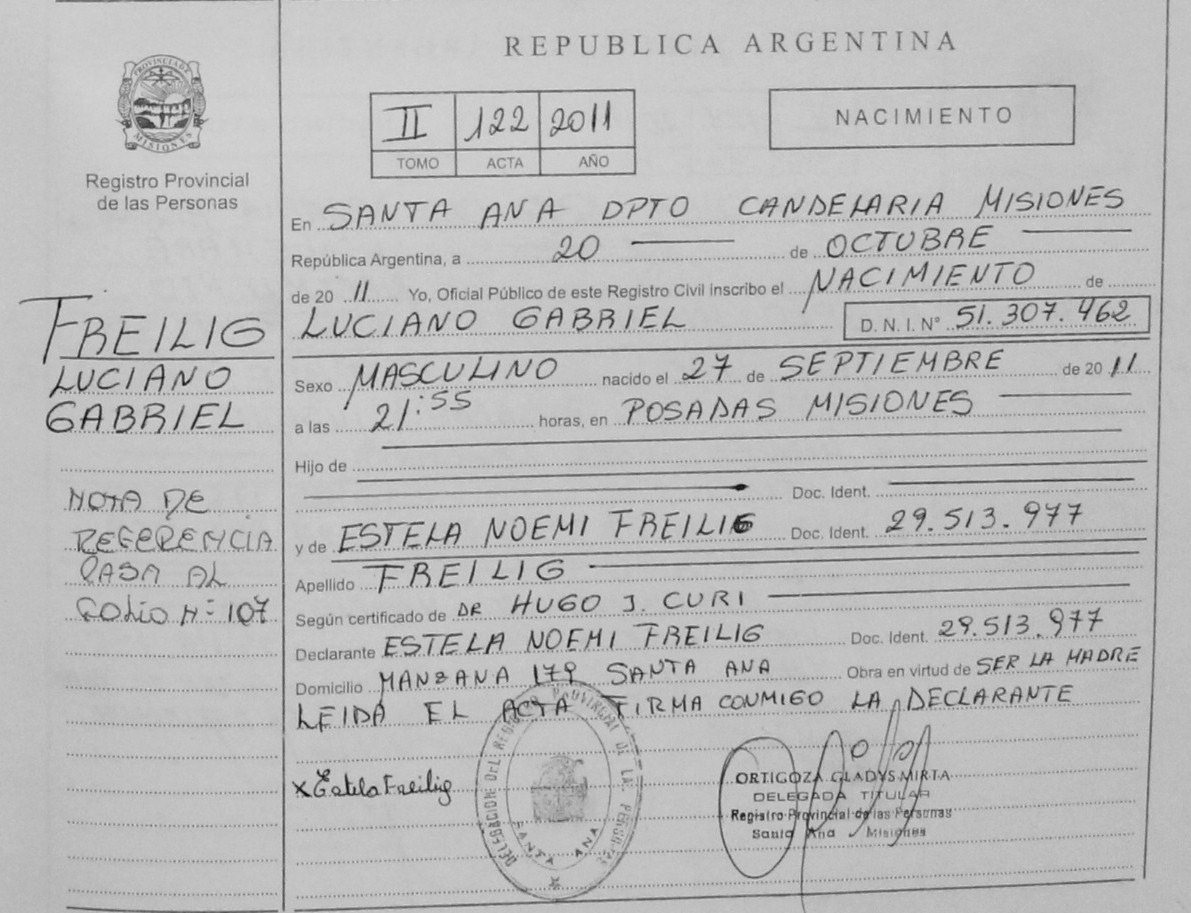 REPUBLICA ARGENTINA
PROVINCIA DE
MISIONES
Registro Provincial
de las Personas
II 122 2011
TOMO ACTA AÑO
NACIMIENTO
En SANTA ANA DPTO CANDELARIA MISIONES
República Argentina, a 20 de OCTUBRE
de 20 11 Yo, Oficial Público de este Registro Civil inscribo el NACIMIENTO de
LUCIANO GABRIEL D. N. I. N° 51.307.462
Sexo MASCULINO nacido el 27 de SEPTIEMBRE de 20 11
a las 21:55 horas, en POSADAS MISIONES
Hijo de
Doc. Ident.
y de ESTELA NOEMI FREILIG Doc. Ident. 29.513.977
Apellido FREILIG
Según certificado de DR HUGO J. CURI
Declarante ESTELA NOEMI FREILIG Doc. Ident. 29.513.977
Domicilio MANZANA 179 SANTA ANA Obra en virtud de SER LA MADRE
LEIDA EL ACTA FIRMA CONMIGO LA DECLARANTE
FREILIG
LUCIANO
GABRIEL
NOTA DE
REFERENCIA
PASA AL
FOLIO N= 107
x Estela Freilig
DELEGACION DEL REGISTRO PROVINCIAL DE LAS PERSONAS
SANTA ANA
ORTIGOZA GLADYS MIRTA
DELEGADA TITULAR
Registro Provincial de las Personas
Santa Ana Misiones